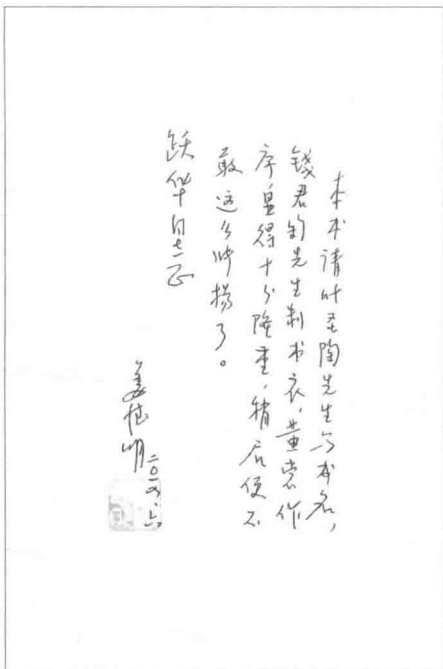 本书请叶圣陶先生写书名，
钱君匋先生制书衣，黄裳作
序显得十分隆重，稍后便不
敢这么张扬了。
跃华同志正
姜德明
二〇一四、六